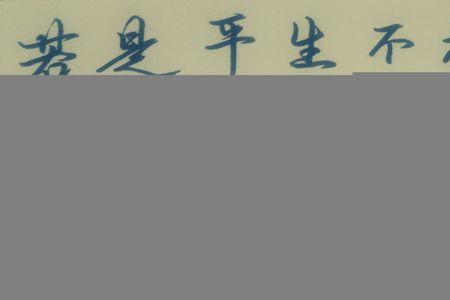 若是平生不